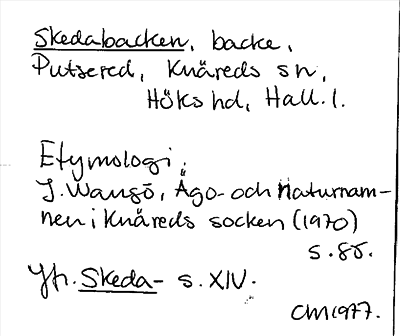 Skedabacken, backe,
Putsered, Knäreds sn,
Höks hd, Hall. l.
Etymologi:
J. Wangö, Ägo- och Naturnam-
nen i Knäreds socken (1970)
s. 85.
Jfr. Skeda- s. XIV.
CM 1977.